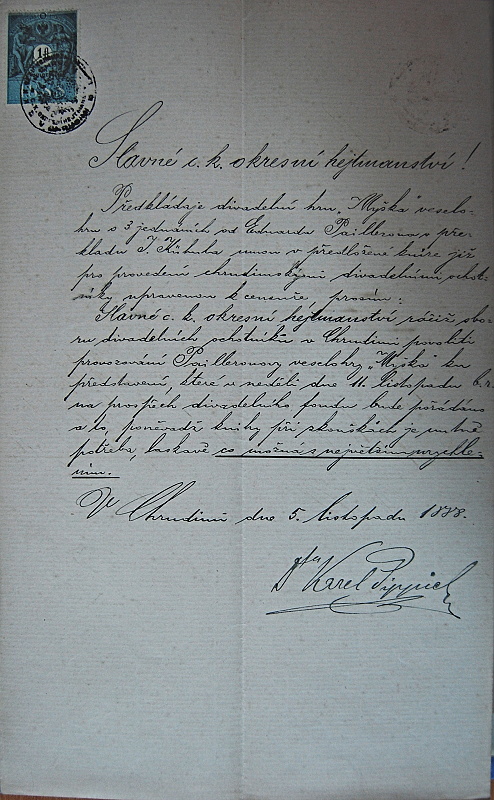 10
Slavné c. k. okresní hejtmanství!
Předkládaje divadelní hru „Myška“ veselo-
hru o 3 jednáních od Eduarda Paillerona v pře-
kladu J. Kühnla mnou v předložené knize již
pro provedení chrudimskými divadelními ochot-
níky upravenou k censuře, prosím:
Slavné c. k. okresní hejtmanství račiž sbo-
ru divadelních ochotníků v Chrudimi povoliti
provozování Pailleronovy veselohry „Myška“ ku
představení, které v neděli dne 11. listopadu b. r.
na prospěch divadelního fondu bude pořádáno
a to, poněvadž knihy při zkouškách je nutně
potřeba, laskavě co možná s největším urychle-
ním.
V Chrudimi dne 5. listopadu 1888.
Dr Karel Pippich